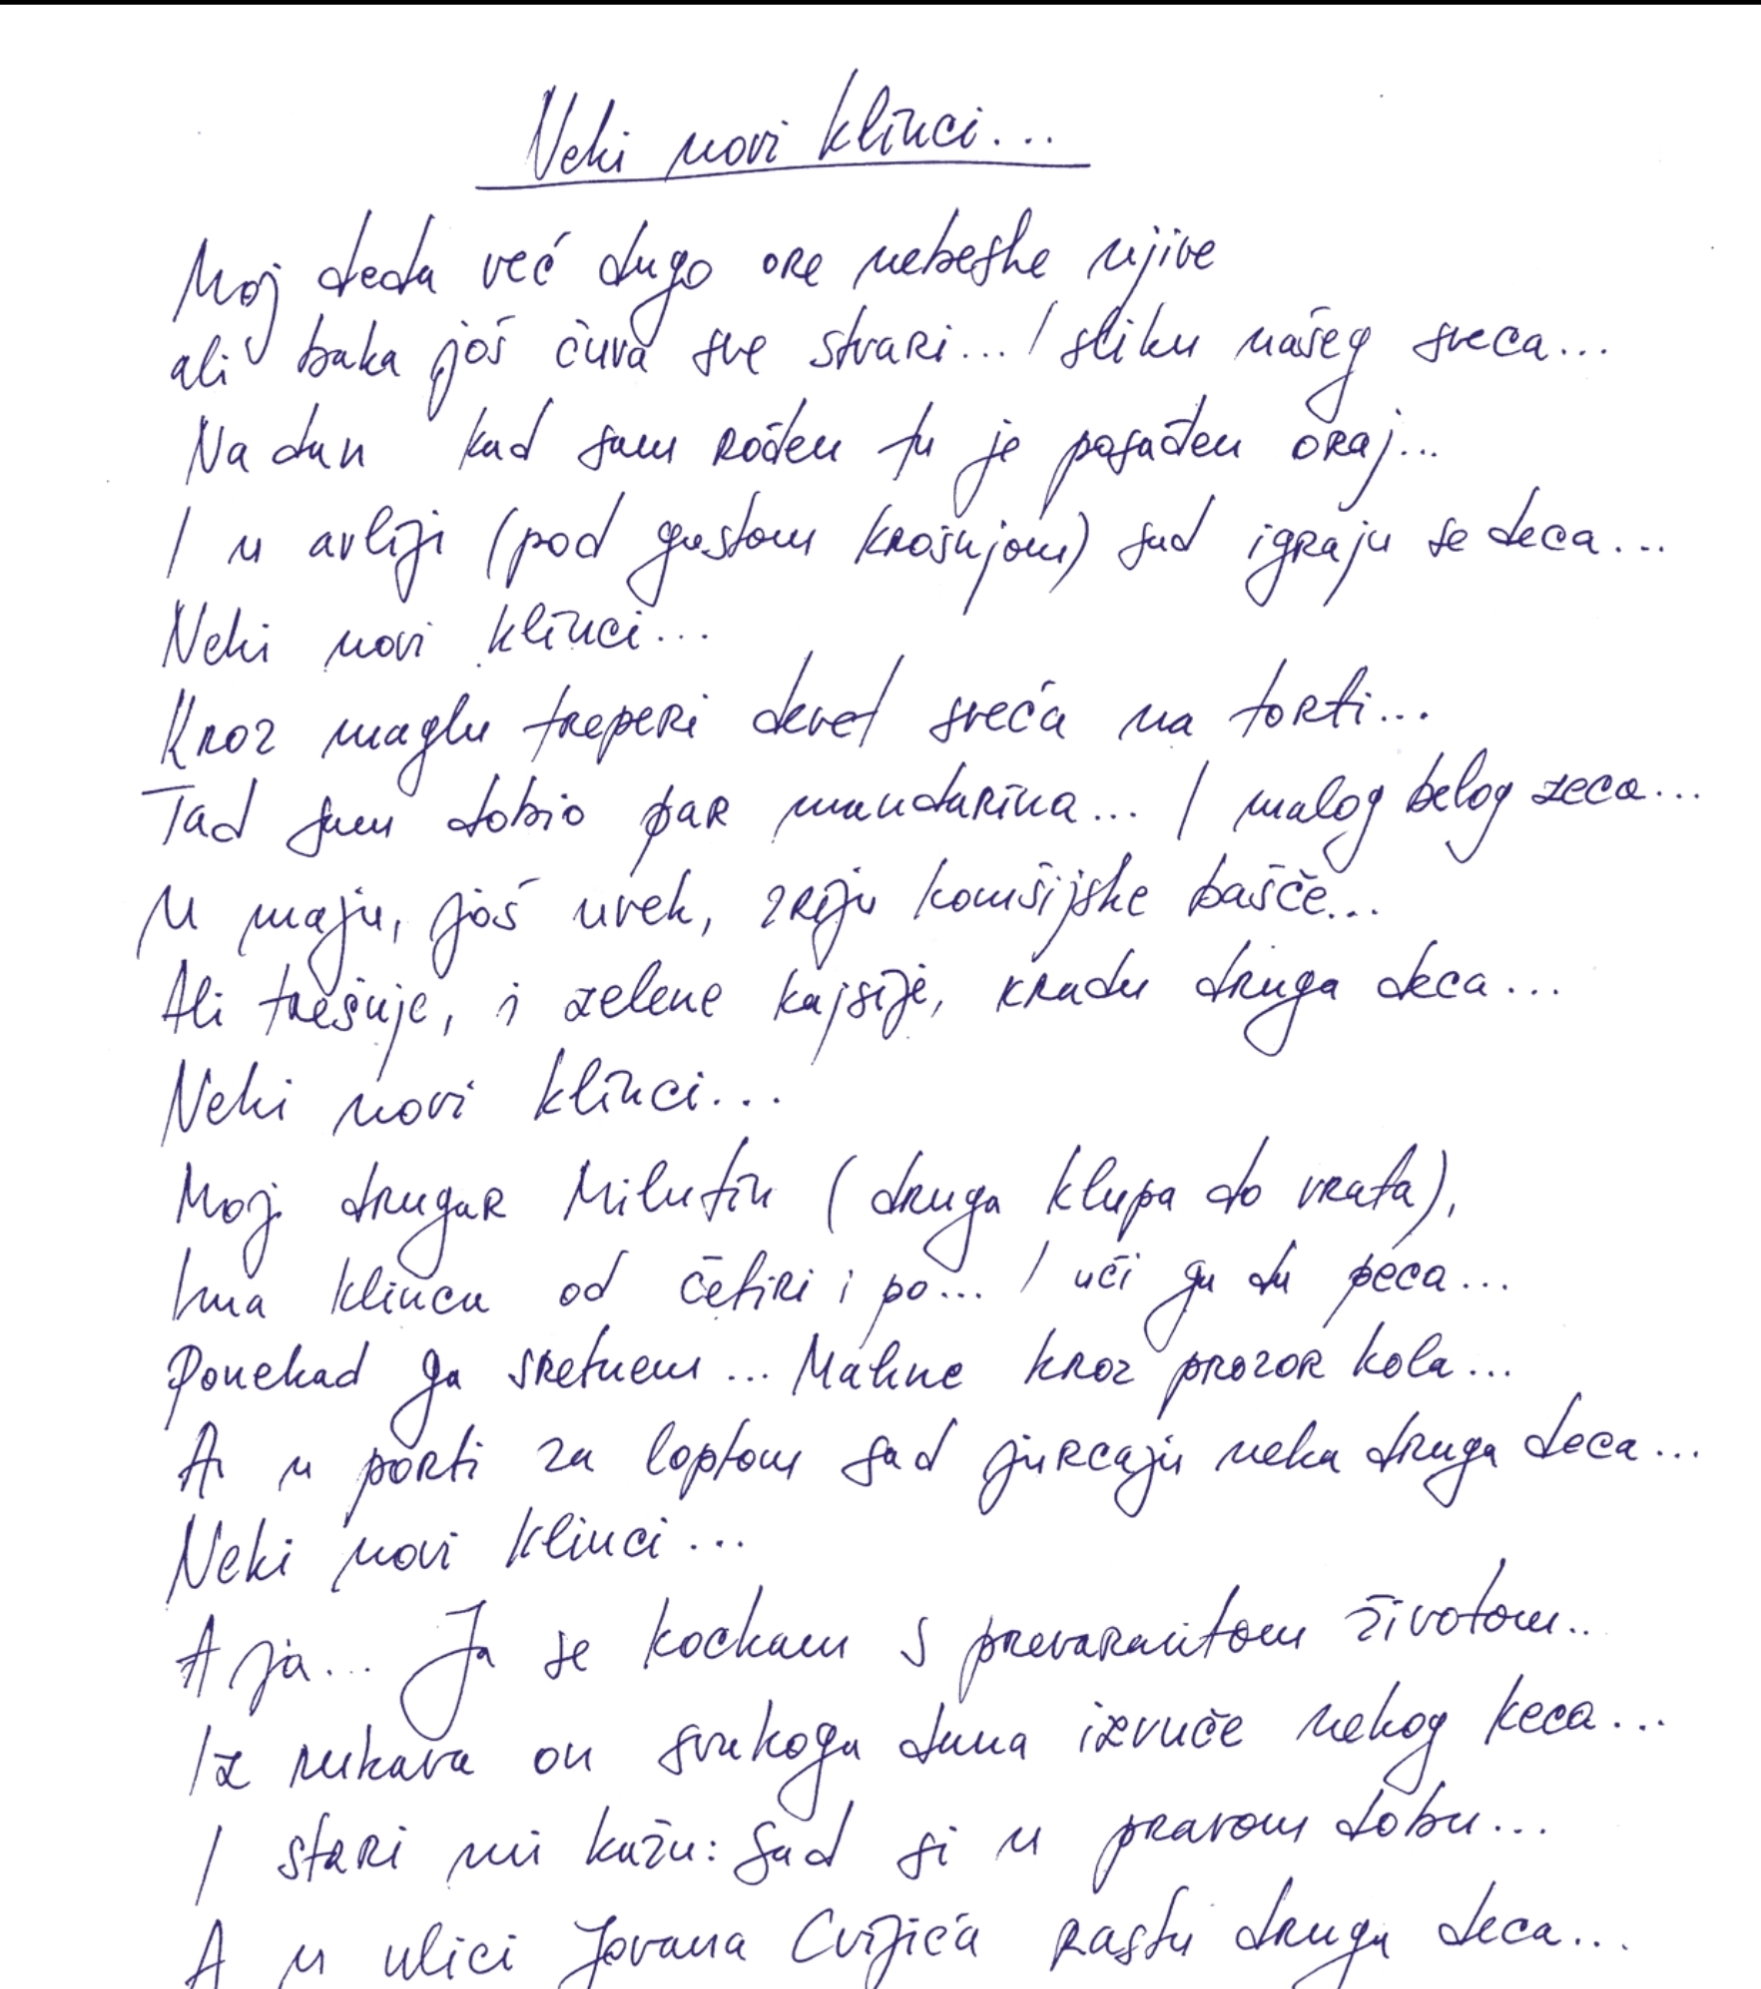 Neki novi klinci...
Moj deda već dugo ore nebeske njive
ali baka još čuva sve stvari... I sliku našeg sveca...
Na dan kad sam rođen tu je posađen oraj...
I u avliji (pod gustom krošnjom) sad igraju se deca...
Neki novi klinci...
Kroz maglu treperi devet sveća na torti...
Tad sam dobio par mandarina... I malog belog zeca...
U maju, još uvek, zriju komšijske bašče...
Ali trešnje, i zelene kajsije, kradu druga deca...
Neki novi klinci...
Moj drugar Milutin (druga klupa do vrata),
Ima klinca od četiri i po... I uči ga da peca...
Ponekad ga sretnem... Mahne kroz prozor kola...
A u porti za loptom sad jurcaju neka druga deca...
Neki novi klinci...
A ja... Ja se kockam s prevarantom životom..
Iz rukava on svakoga dana izvuče nekog keca...
I stari mi kažu: Sad si u pravom dobu...
A u ulici Jovana Cvijića rastu druga deca...